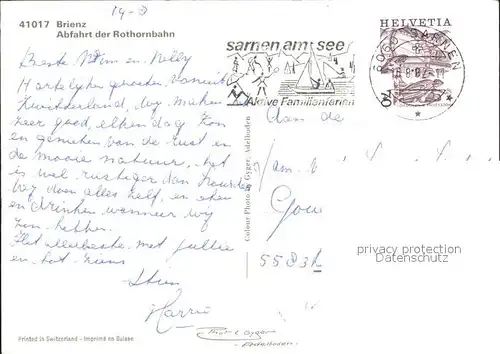 14-8
41017 Brienz
Abfahrt der Rothornbahn
HELVETIA
sarnen am see
Aktive Familienferien
6060 SARNEN
Beste Wim en Nelly
Hartelijke groeten vanuit
Zwitserland, wij maken
zeer goed, elken dag zon
en genieten van de rust en
de mooie natuur. Het
is wel rustiger dan
wij doen alles zelf, en eten
en drinken wanneer wij
zin hebben.
Het allerbeste met jullie
en tot ziens
Harrie
Aan de
Fam.
5583
Colour Photo by Gyger, Adelboden
privacy protection
www.ansichtskartenversand.com
Printed in Switzerland - Imprimé en Suisse
Gyger
Adelboden